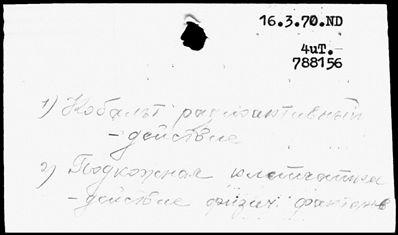 16.3.70.ND
4uT.
788156
1) Кобальт радиоактивный
- действие
2) Подкожная клетчатка
- действие физич. факторов